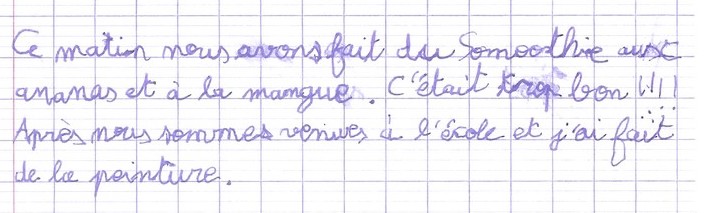 Ce mation nous avons fait du Somoothie aux
ananas et à la mangue. C'était trop bon !!!!
Après nous sommes venues à l'école et j'ai fait
de la peinture.